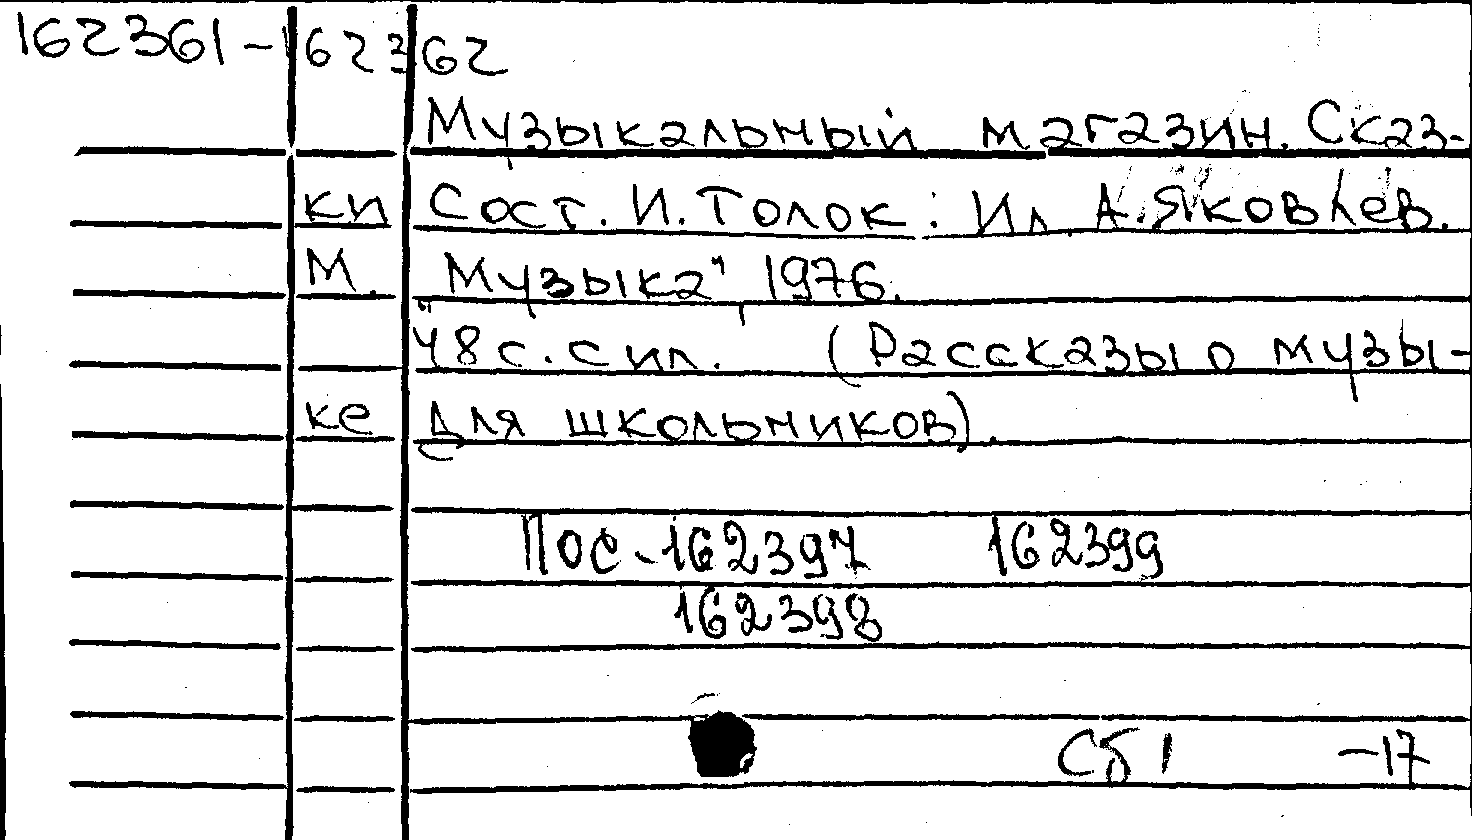 162361-162362
Музыкальный магазин. Сказ-
ки Сост. И. Толок: Ил. А. Яковлев.
М. "Музыка", 1976.
48 с. с ил. (Рассказы о музы-
ке для школьников).
Пос-162397 162399
162398
Сб 1 -17